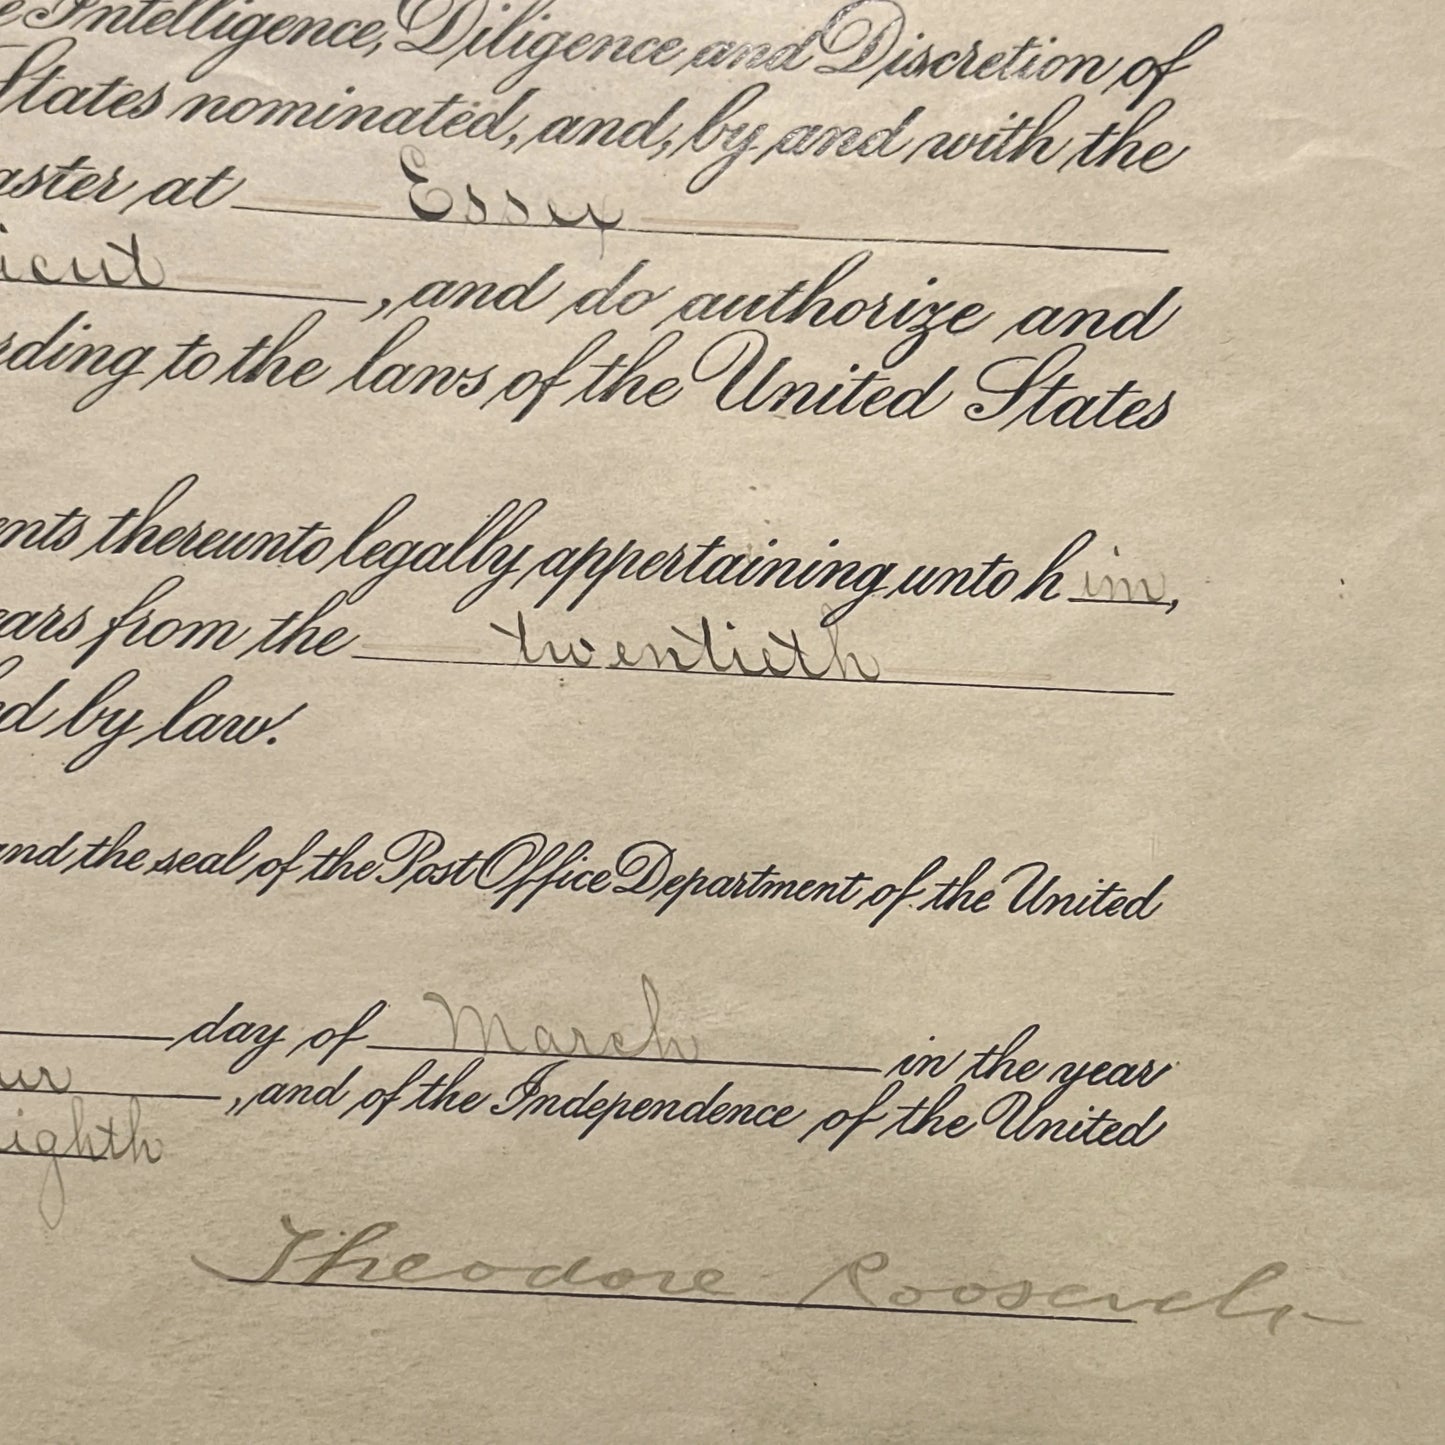 Intelligence, Diligence and Discretion of
States nominated, and, by and with the
aster at Essex
icut, and do authorize and
rding to the laws of the United States
ents thereunto legally appertaining unto him,
ears from the twentieth
ed by law.
and the seal of the Post Office Department of the United
day of March in the year
ur, and of the Independence of the United
ighth
Theodore Roosevelt